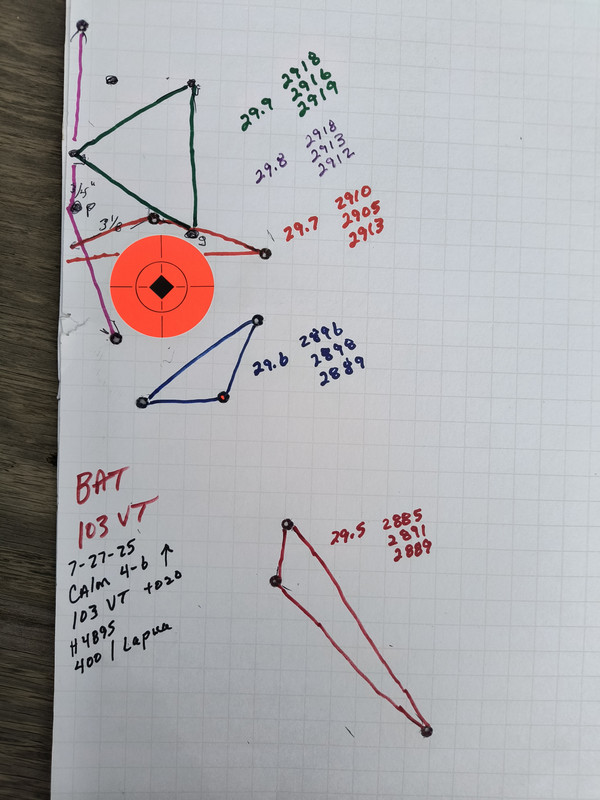 2918
29.9 2916
2919
2918
29.8 2913
2912
3/4"
P
3 1/8
9
2910
29.7 2905
2913
2896
29.6 2898
2889
BAT
103 VT
7-27-25
CAlm 4-6 ↑
103 VT +020
H4895
400 / Lapua
2885
29.5 2891
2889